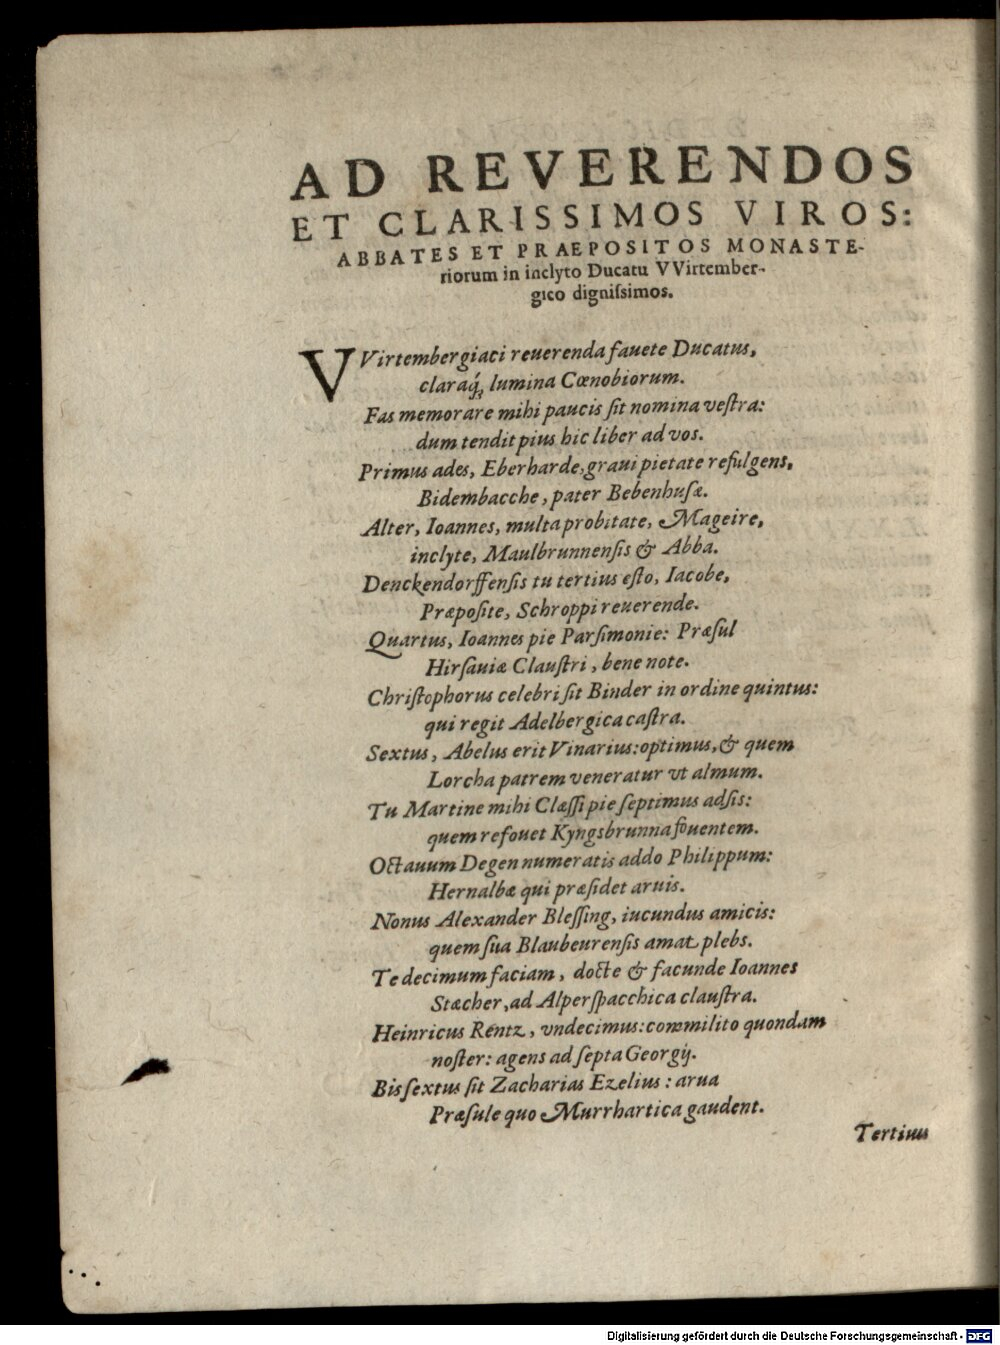 AD REVERENDOS
ET CLARISSIMOS VIROS:
ABBATES ET PRAEPOSITOS MONASTE-
riorum in inclyto Ducatu VVirtember-
gico digniſsimos.
VVirtembergiaci reuerenda fauete Ducatus,
claraq́; lumina Cœnobiorum.
Fas memorare mihi paucis ſit nomina veſtra:
dum tendit pius hic liber ad vos.
Primus ades, Eberharde, graui pietate refulgens,
Bidembacche, pater Bebenhuſæ.
Alter, Ioannes, multa probitate, Mageire,
inclyte, Maulbrunnenſis & Abba.
Denckendorffenſis tu tertius eſto, Iacobe,
Præpoſite, Schroppi reuerende.
Quartus, Ioannes pie Parſimonie: Præſul
Hirſauiæ Clauſtri, bene note.
Chriſtophorus celebri ſit Binder in ordine quintus:
qui regit Adelbergica caſtra.
Sextus, Abelus erit Vinarius: optimus, & quem
Lorcha patrem veneratur vt almum.
Tu Martine mihi Clæſſi pie ſeptimus adſis:
quem refouet Kyngsbrunna fouentem.
Octauum Degen numeratis addo Philippum:
Hernalbæ qui præſidet aruis.
Nonus Alexander Bleſſing, iucundus amicis:
quem ſua Blaubeurenſis amat plebs.
Te decimum faciam, docte & facunde Ioannes
Stæcher, ad Alperſpacchica clauſtra.
Heinricus Rentz, vndecimus: commilito quondam
noſter: agens ad ſepta Georgij.
Bis ſextus ſit Zacharias Ezelius: arua
Præſule quo Murrhartica gaudent.
Tertius
Digitalisierung gefördert durch die Deutsche Forschungsgemeinschaft - DFG